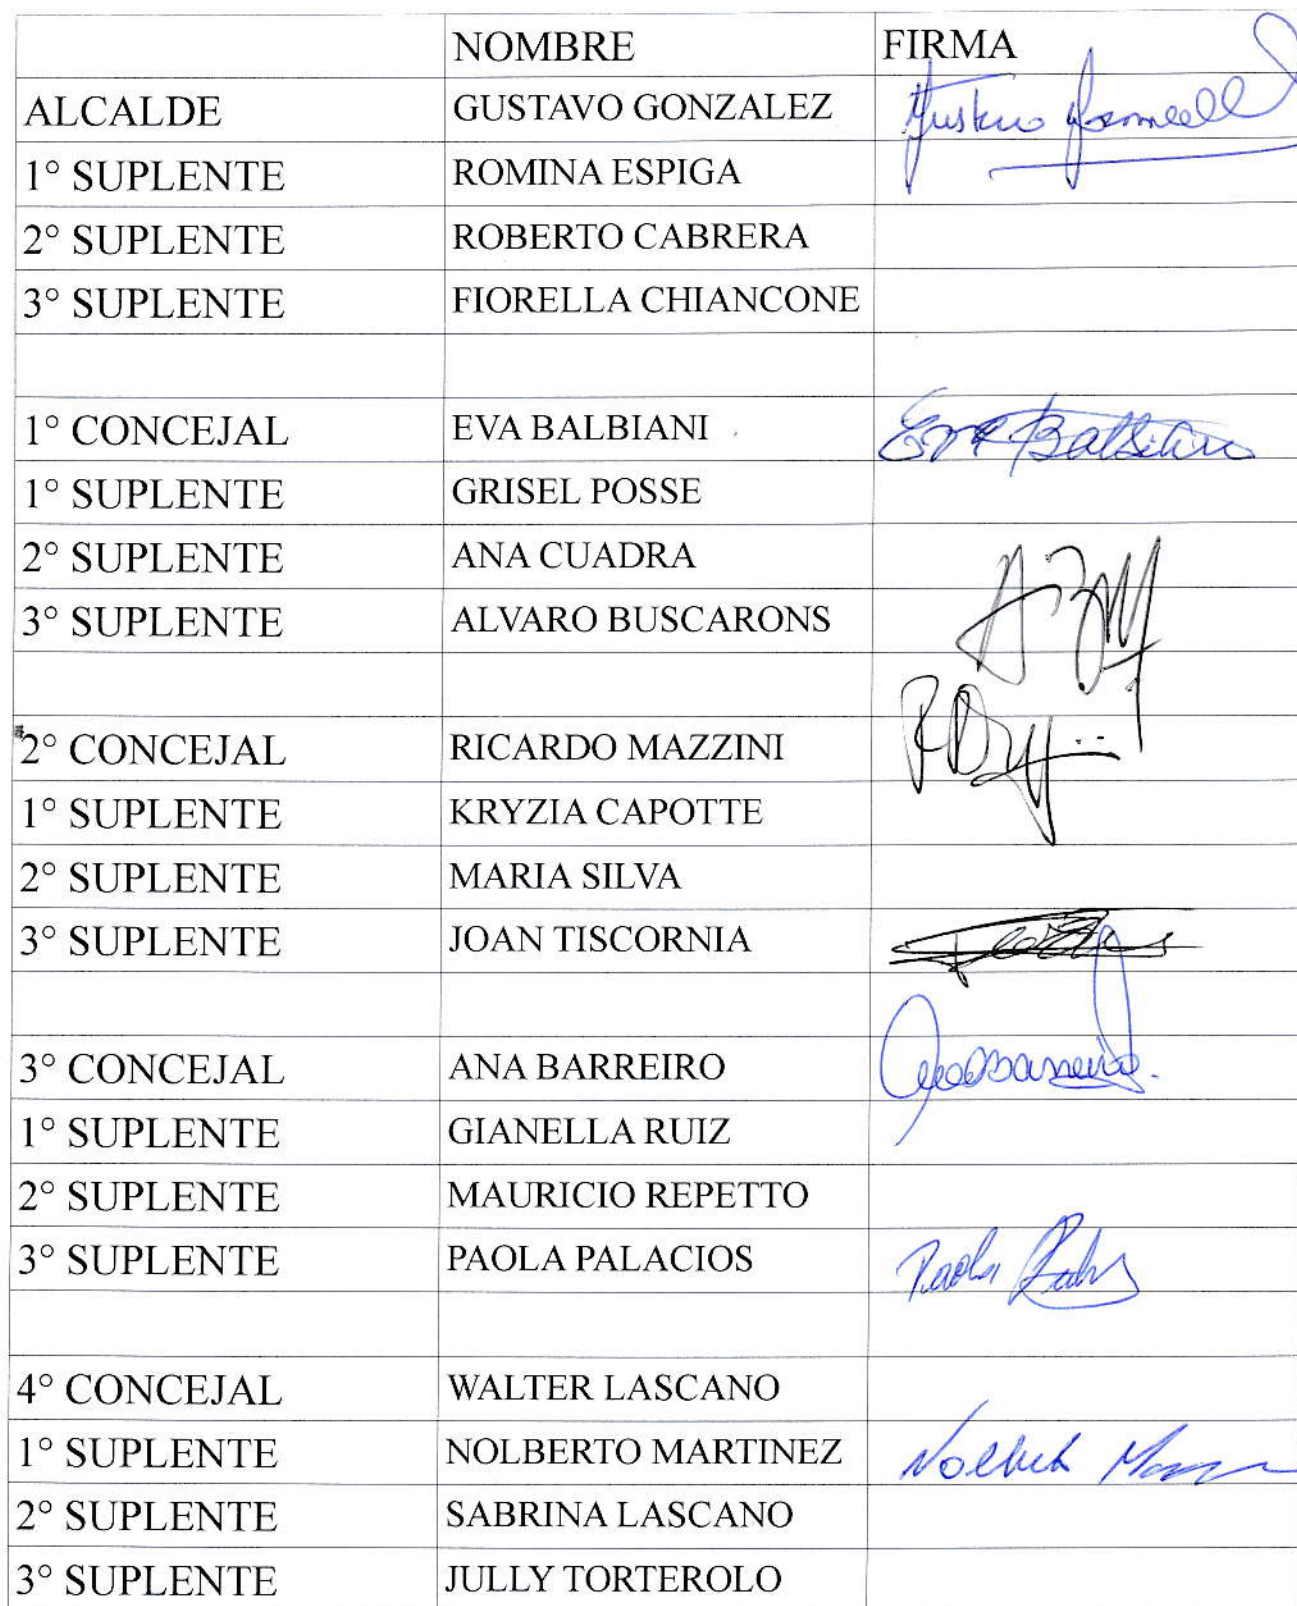 NOMBRE FIRMA
ALCALDE GUSTAVO GONZALEZ
1° SUPLENTE ROMINA ESPIGA
2° SUPLENTE ROBERTO CABRERA
3° SUPLENTE FIORELLA CHIANCONE
1° CONCEJAL EVA BALBIANI Eva Balbiani
1° SUPLENTE GRISEL POSSE
2° SUPLENTE ANA CUADRA
3° SUPLENTE ALVARO BUSCARONS
2° CONCEJAL RICARDO MAZZINI
1° SUPLENTE KRYZIA CAPOTTE
2° SUPLENTE MARIA SILVA
3° SUPLENTE JOAN TISCORNIA
3° CONCEJAL ANA BARREIRO
1° SUPLENTE GIANELLA RUIZ
2° SUPLENTE MAURICIO REPETTO
3° SUPLENTE PAOLA PALACIOS Paola
4° CONCEJAL WALTER LASCANO
1° SUPLENTE NOLBERTO MARTINEZ
2° SUPLENTE SABRINA LASCANO
3° SUPLENTE JULLY TORTEROLO